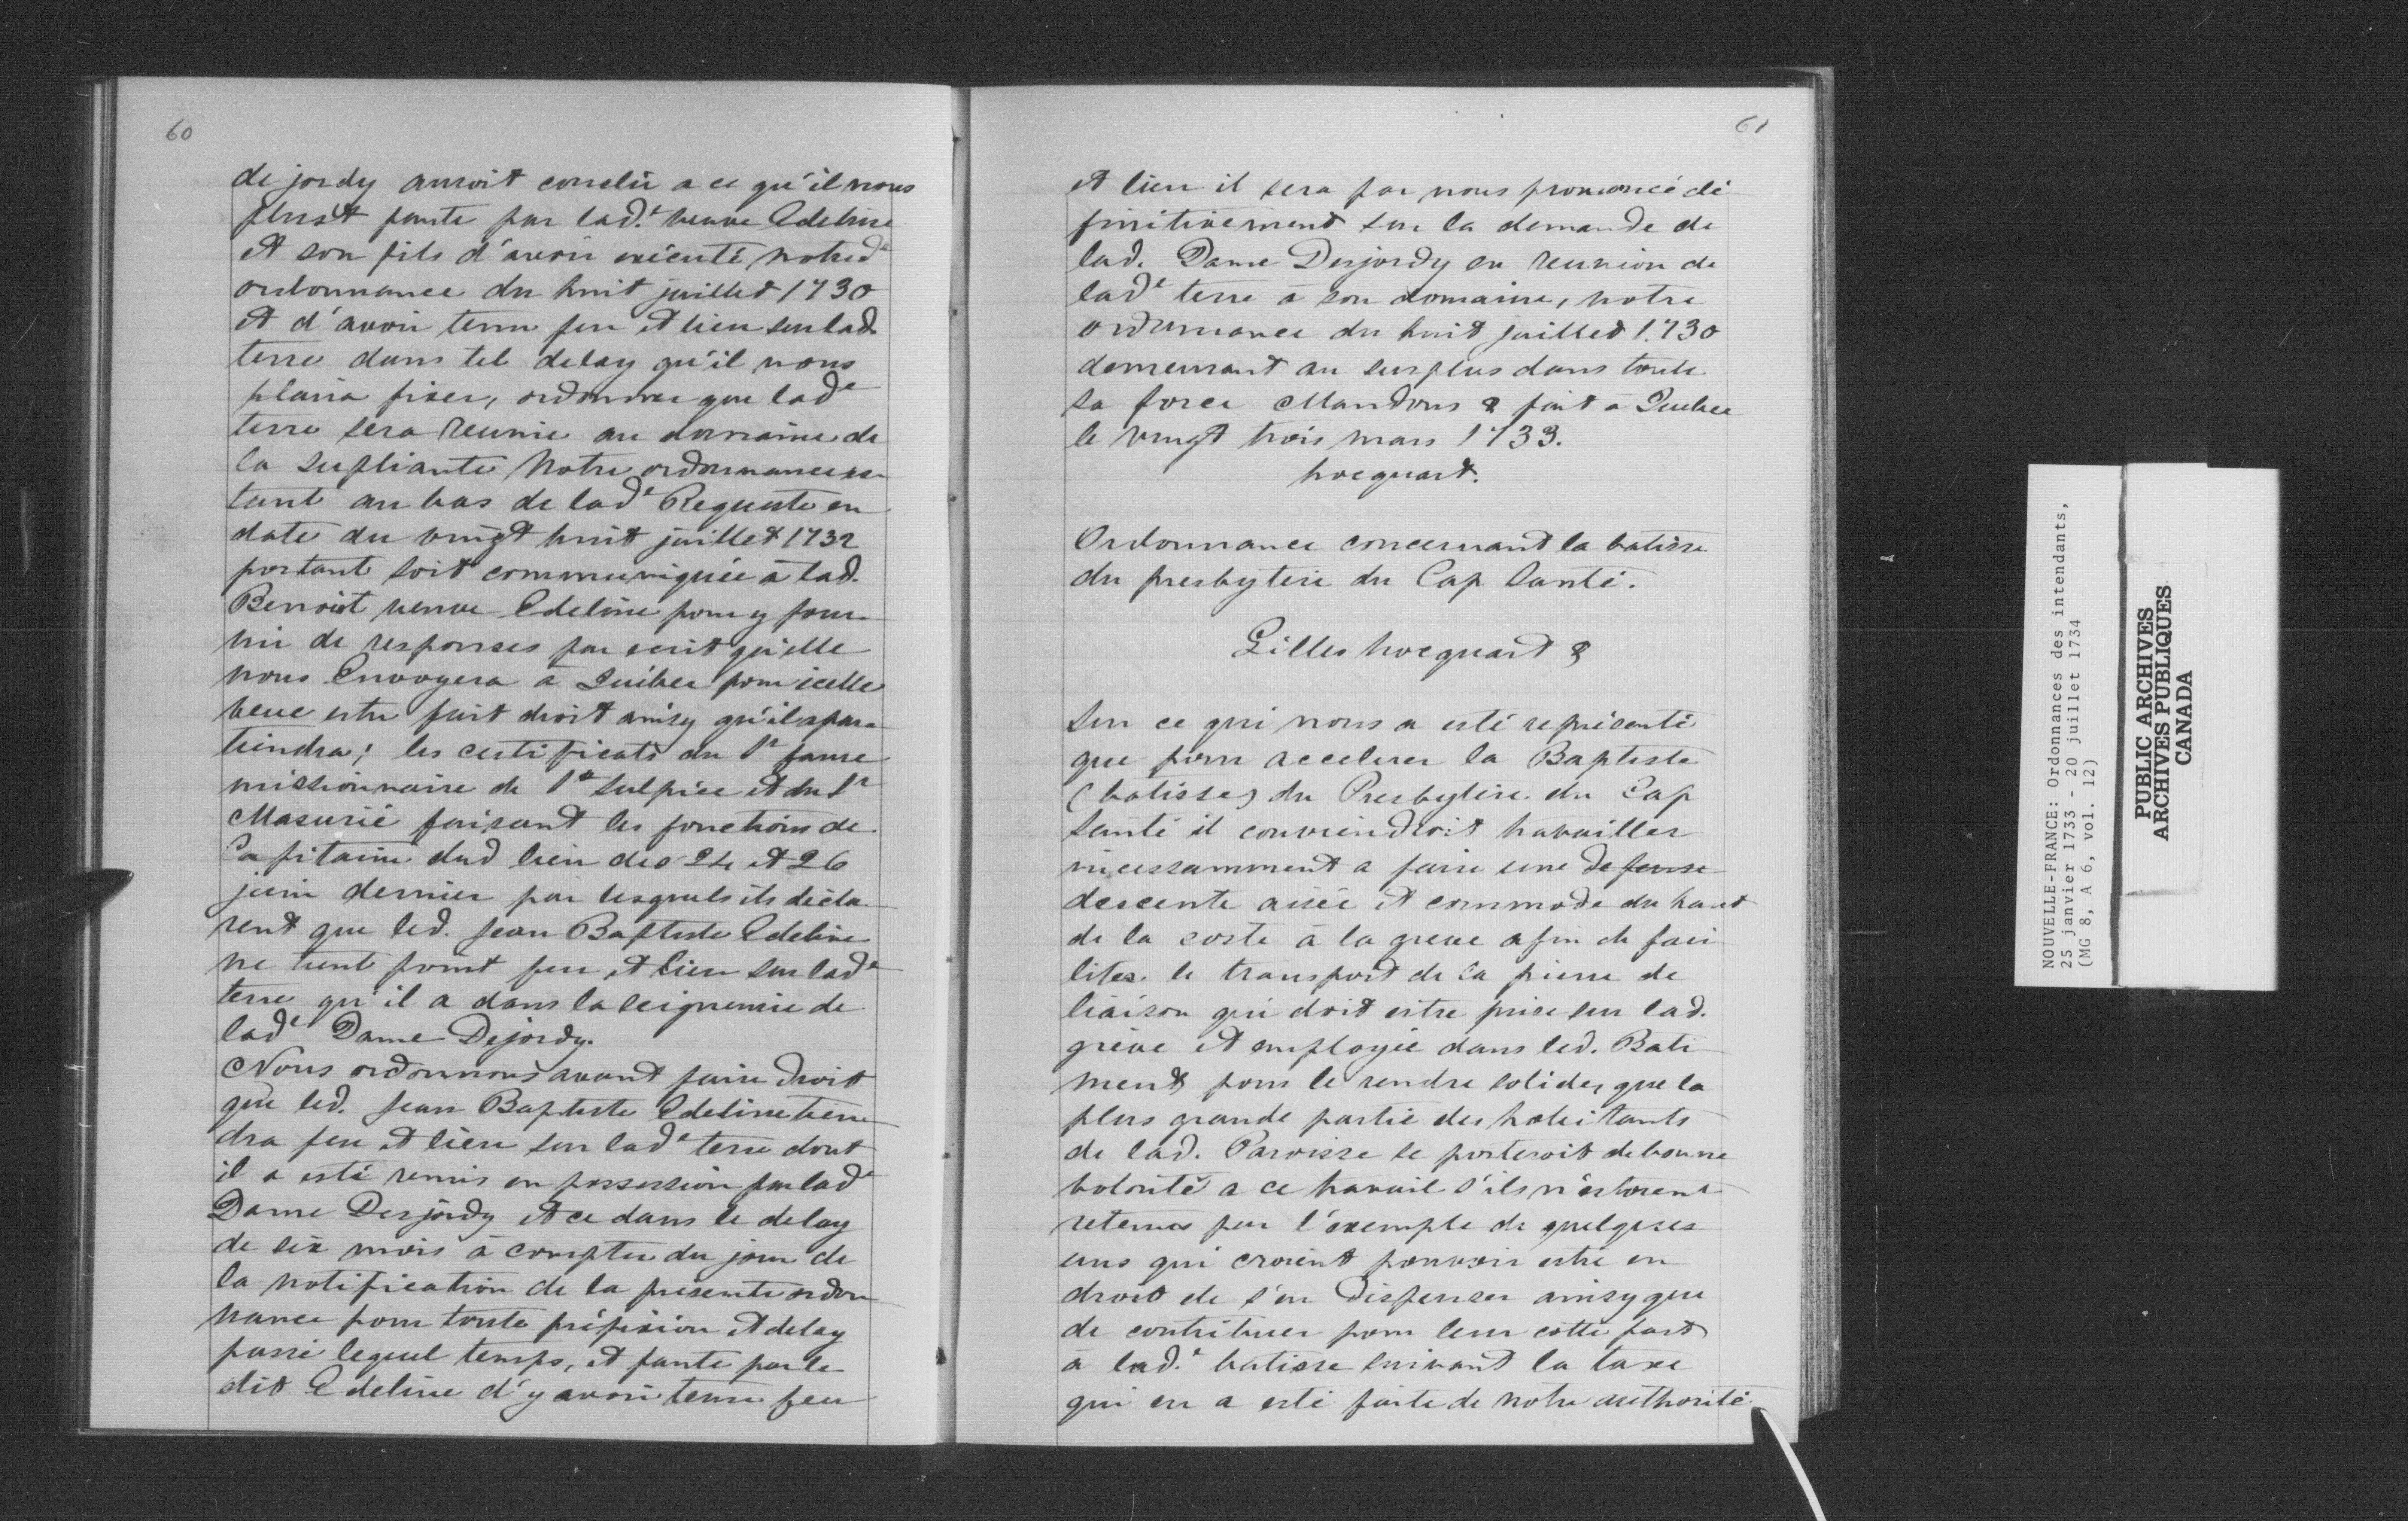 60
de jordy auroit conclu a ce qu'il nous
plust faute par lad.e veuve Edeline
et son fils d'avoir exécuté notred.e
ordonnance du huit juillet 1730
et d'avoir tenu feu et lieu sur lad.
terre dans tel delay qu'il nous
plaira fixer, ordonner que lad.e
terre sera reunie au domaine de
la supliante Notre ordonnance es-
tant au bas de lad.e Requeste en
date du vingt huit juillet 1732
portant soit communiquée à lad.
Benoist veuve Edeline pour y four-
nir de responses par ecrit qu'elle
nous Envoyera à Québec pour icelle
veue estre fait droit ainsy qu'il apar-
tiendra; les certificats du Sr
missionnaire de St Sulpice et du Sr
Masurié faisant les fonctions de
Capitaine dud lieu des 24 et 26
juin dernier par lesquels ils décla-
rent que led. Jean Baptiste Edeline
ne tient point feu et lieu sur lad.e
terre qu'il a dans la seigneurie de
lad.e Dame Dejordy.
Nous ordonnons avant faire droit
que led. Jean Baptiste Edeline tien-
dra feu et lieu sur lad.e terre dont
il a esté remis en possession par lad.e
Dame Desjordy et ce dans le delay
de six mois à compter du jour de
la notification de la presente ordon
nance pour toute préfixion et delay
passé lequel temps, et faute par le
dit Edeline d'y avoir tenu feu
61
et lieu il sera par nous prononcé dé-
finitivement sur la demande de
lad. Dame Desjordy en reunion de
lad.e terre à son domaine, notre
ordonnance du huit juillet 1730
demeurant au surplus dans toute
sa force Mandons & fait à Quebec
le vingt trois mars 1733.
hocquart.
Ordonnance concernant la batisse
du presbytere du Cap Santé.
Gilles hocquart &
Sur ce qui nous a esté représenté
que pour accelerer la Baptiste
(batisse) du Presbytère du Cap
Santé il conviendroit travailler
incessamment a faire une defense
descente aisée et commode du haut
de la coste à la greve afin de faci-
liter le transport de la pierre de
liaison qui doit estre prise sur lad.
grève et employée dans led. Bati-
ment pour le rendre solide, que la
plus grande partie des habitants
de lad. Paroisse se porteroit de bonne
volonté a ce travail s'ils n'estoient
retenus par l'exemple de quelques
uns qui croient pouvoir estre en
droit de s'en dispenser ainsy que
de contribuer pour leur cotte part
à lad.e batisse suivant la taxe
qui en a esté faite de notre authorité
NOUVELLE-FRANCE: Ordonnances des intendants,
25 janvier 1733 - 20 juillet 1734
(MG 8, A 6, vol. 12)
PUBLIC ARCHIVES
ARCHIVES PUBLIQUES
CANADA